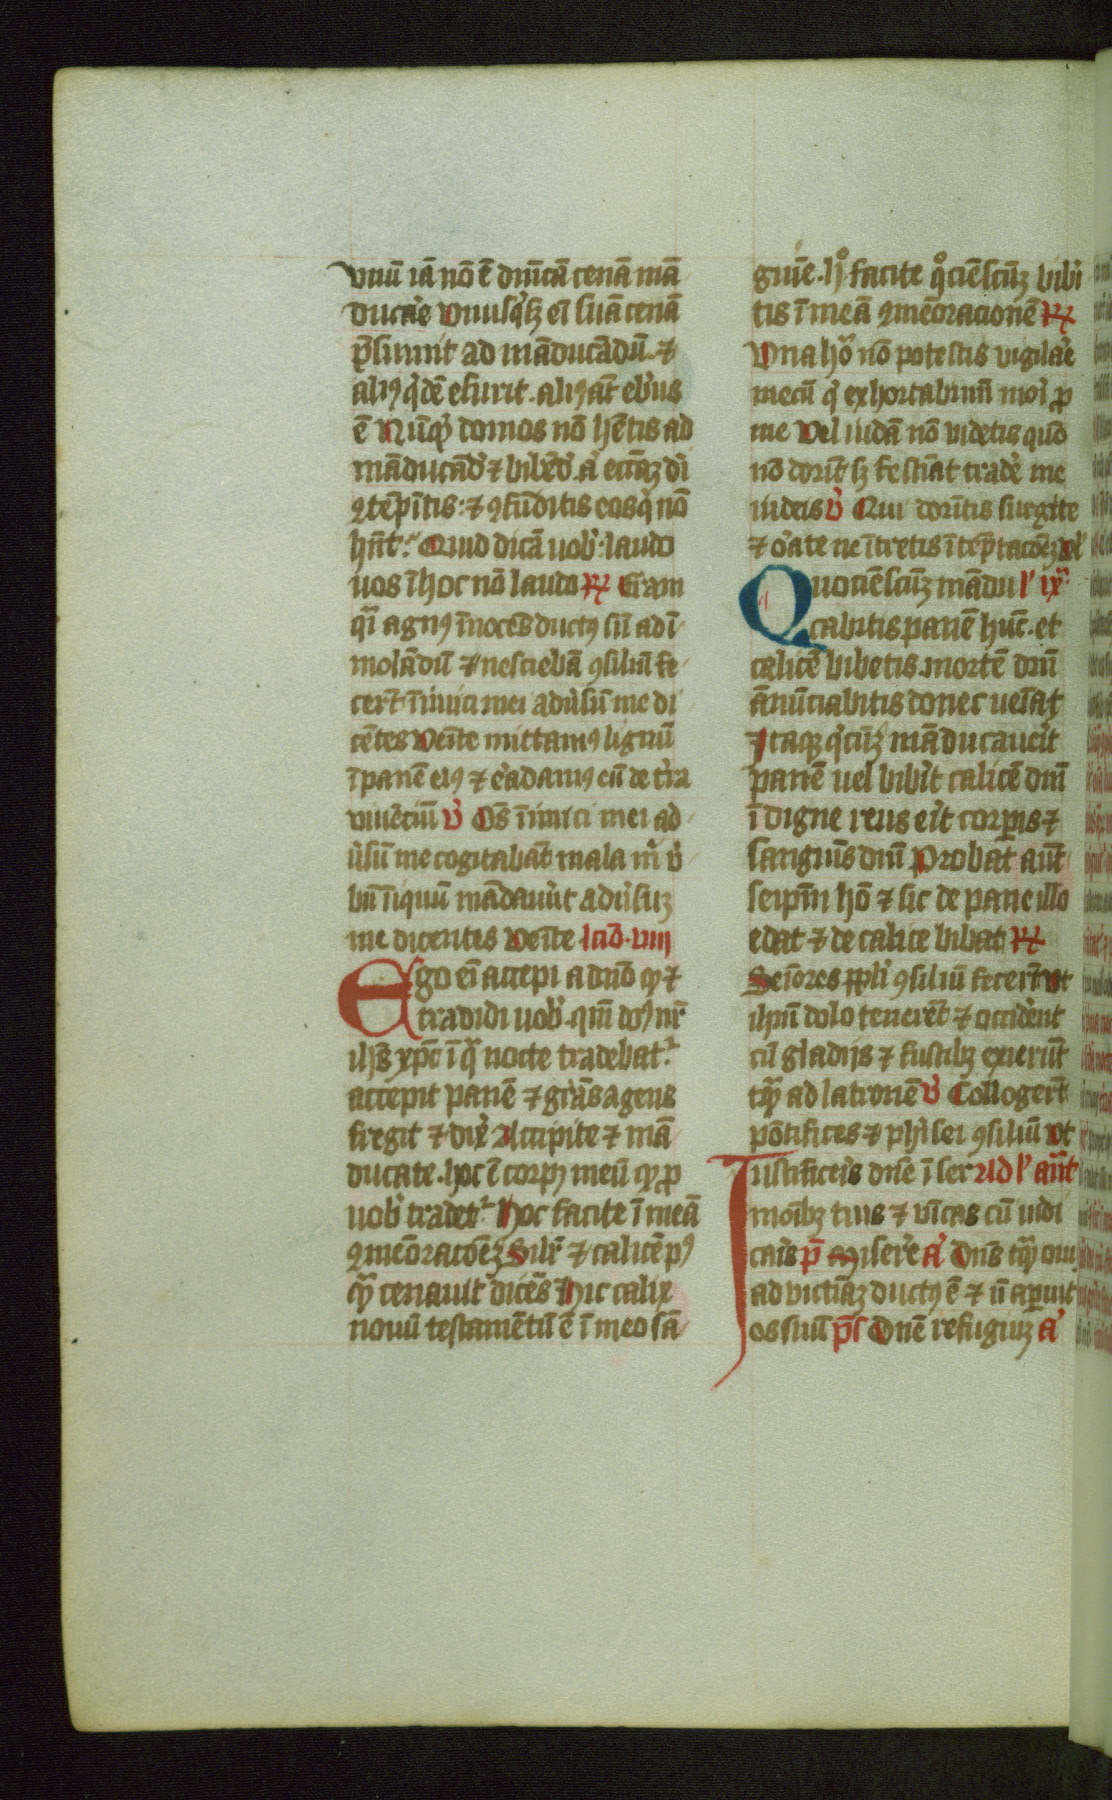 vnū iā nō ē dnīcā cenā mā
ducaͬe vnusqͥsqꝫ eī suā cenā
p̄sumit ad māducādū. ⁊
aliꝰ qͥdē esurit. aliꝰ aūt ebͥus
ē Nūqͥd domos nō hētis ad
māducādͫ ⁊ bibēdͫ. aͭ ecciaꝫ dī
ꝯtēpnitis: ⁊ ꝯfūditis eos qͥ nō
hn̄t. Quid dicā uobͥ: laudo
uos ī hoc nō laudo ℟ Eram
qͣi agnꝰ īnocēs ductꝰ sū ad ī
molādū ⁊ nesciebā ꝯsiliū fe
cer̄t īimici mei adūsū me di
cētes venīte mittamꝰ lignū
ī panē eiꝰ ⁊ eͬadamꝰ eū de tͬra
viuētiū ℣ Om̄s īimici mei ad
ūsū me cogitabāt mala mͥ ū
bū īiquū mādauerūt adūsuꝫ
me dicentes venīte lcıo͞. viij
Ego eī accepi a dnō qͩ ⁊
tradidi uobͥ. qm̄ dn̄s nr̄
ih̄s xp̄c ī qͣ nocte tradebatͬ
accepit panē ⁊ grās agens
fregit ⁊ dix̄ Accipite ⁊ mā
ducate. hoc ē corpꝰ meū qͩ ꝓ
uobͥ tradetͬ Hoc facite ī meā
ꝯmēoracōeꝫ Silr̄ ⁊ calicē pꝰ
qͣ cenauit dicēs Hic calix
nouū testamētū ē ī meo sā
guīe. hͦ facite qͦciēscūqꝫ bibi
tis ī meā ꝯmēoracionē ℟
Vna hoͬ nō potestis vigilaͬe
mecū qͥ exhortabimī moͬi ꝓ
me Vel iudā nō videtis quō
nō dormit sꝫ festināt tradeͬ me
iudeis ℣ Quid dormitis surgite
⁊ oͬate ne ītretis ī tēptacōeꝫ Vl̄
Quociēscūqꝫ māduͨ l' ix
cabitis panē hūc. et
calicē bibetis. mortē dnī
ānūciabitis donec ueniat
Itaqꝫ qͥcūqꝫ māducauerit
panē uel biberit calicē dnī
īdigne reus erit corp̄is ⁊
sanguīs dnī Probat aūt
seip̄m hō ⁊ sic de pane illo
edat ⁊ de calice bibat ℟
Seniores pp̄li ꝯsiliū fecer̄t vt
ih̄m dolo tenerēt ⁊ occiderent
cū gladijs ⁊ fustibꝫ exierūt
tqͣ ad latronē ℣ Collogert̄
pōtifices ⁊ phͥsei ꝯsiliū vt
Iustificeris dnē ī ser Ad l' ant̄
monibꝫ tuis ⁊ vīcas cū iudi
caris p̄s Misereͬe aͣ Dn̄s tqͣ ouis
ad victimā ductꝰ ē ⁊ nō aperuit
os suū p̄s Dn̄e refugiuꝫ aͣ